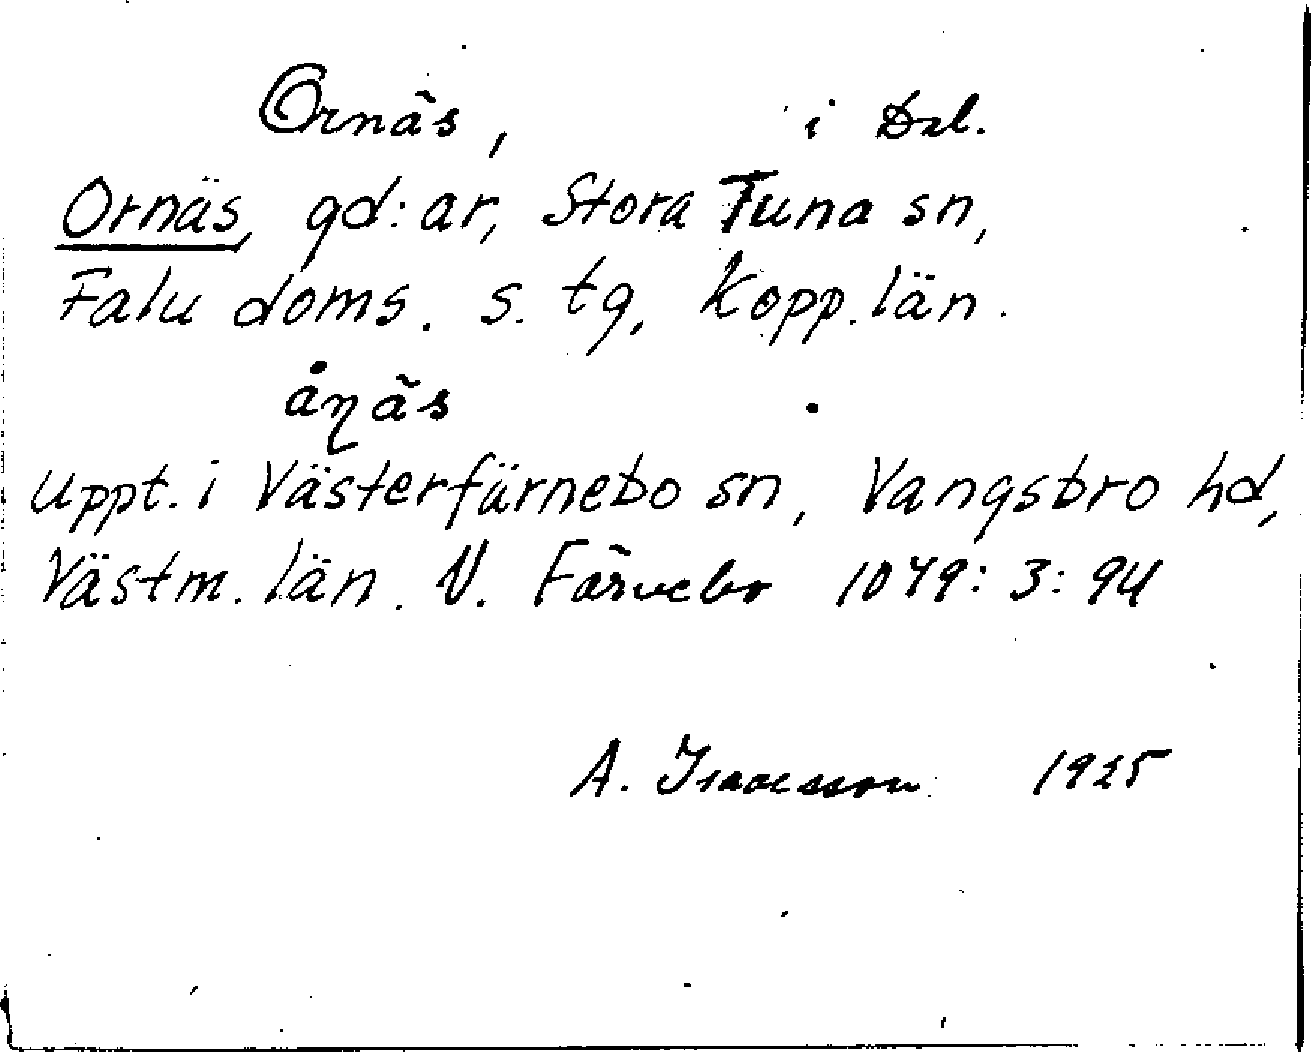 Ornäs, i Dal.
Ornäs, gd:ar, Stora Tuna sn,
Falu doms. s. tg, Kopp. län.
åɳäs
Uppt. i Västerfärnebo sn, Vangsbro hd,
Västm. län. V. Färnebo 1079:3:94
A. Isaacsson 1925